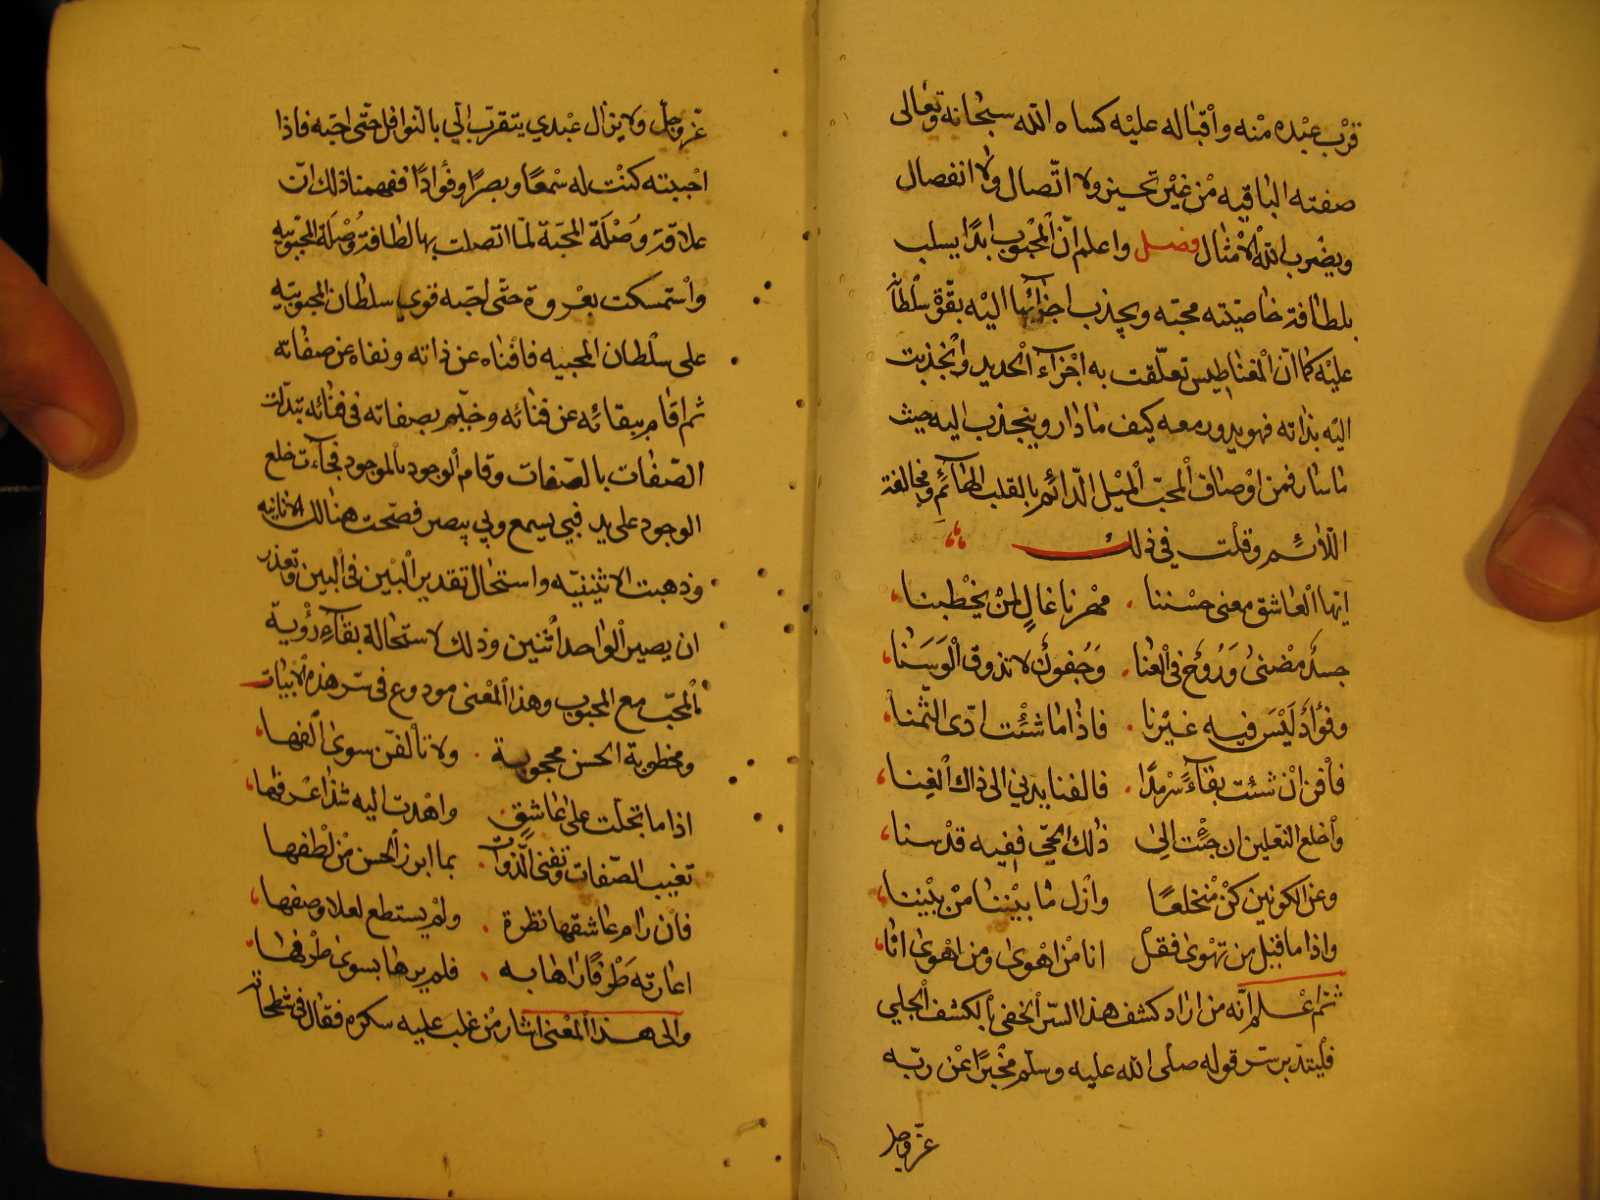 قرْب عبْده منْه واقْباله عليْه كساه الله سبحانه وتعالى
صفته الباقيه منْ غيْر تحيز ولا اتّصال ولا انفصال
ويضْرب الله الامْثال فصل واعلم انّ المْحبوب ابدًا يسلب
بلطافة خاصيّته محبّه ويجذب اجزائها اليْه بقوّة سلْطانه
عليْه كما انّ المْغناطيس تعلّقت به اجْزآء الْحديد وانْجذبت
اليْه بذاته فهو يدور معه كيف ما دار وينجذب اليه حيث
ما سار فمن اوْصاف الْمحبّ الميْل الدّائم بالقلب الهائم ومخالفة
اللّائم وقلْت في ذلك
ايّها الْعاشق معنى حسْننا . مهْرنا غالٍ لمنْ يخْطبنا
جسدٌ مضْنىً وَرُوحٌ في الْعنا . وَجُفونٌ لا تذوق الْوَسَنا
وفؤادٌ لَيْسَ فيه غيْرنا . فاذا ما شئْت ادّى الثّمنا
فافن انْ شئت بقآءً سرْمدًا . فالفنا يدني الى ذاك الْفِنا
واخلع النّعلين ان جئْت الى ذلك الحيّ ففيه قدْسنا
وعن الكونين كنْ منْخلعًا وازْل ما بيْننا منْ بيْننا
واذا ما قيل من تهْوى فقلْ انا منْ اهْوى ومن اهْوى انا
ثمّ اعْلم انّه من اراد كشف هذا السّر الْخفي بالكشف الْجلي
فلْيتدبر سرّ قوله صلى الله عليه وسلّم مخْبرًا عنْ ربّه
عزّ وجل
عزّ وجلّ ولا يزال عبْدي يتقرب اليّ بالنّوافل حتّى احبّه فاذا
احْببته كنْت له سمْعًا وبصرًا وفؤادًا ففهمنا ذلك انّ
علاقة وُصْلَة المحبّة لمّا اتصلت بها لطافة وُصْلَة المحبوبيّه
واسْتمسكت بعرْوة حتّى احبّه قوي سلطان المحبوبيّه
على سلْطان المحبيه فافْناه عن ذاته ونفاه عن صفاته
ثم اقام ببقائه عن فنائه وخيّم بصفاته في فنائه تبدّلت
الصّفات بالصّفات وقام الْوجود بالموجود فجآءت خلع
الوجود على يد فبي يسمع وبي يبصر فصحّت هنالك الانانيه
وذهبت الاثنينيّه واستحال تقدير البْين في الْبين وتعذر
ان يصير الْواحد اثْنين وذلك لاستحالة بقآء رؤْية
المْحبّ مع المحبوب وهذا المْعنى مودوع في سرّ هذه الابْيات
ومخطوبة الحسن محجوبة . ولا تألفن سوى الْفها
اذا ما تجلّت على عاشقٍ واهْدت اليه شذا عرْفها
تغيب الصّفات وتفنى الذّوات . بما ابرز الْحسن منْ لطْفها
فان رام عاشقها نظرة . ولمْ يستطع لعلا وصفها
اعارته طَرْفًا راها به . فلم يرها بسوى طرْفها
والى هذا المْعنى اشار منْ غلب عليه سكره فقال في شطحاته